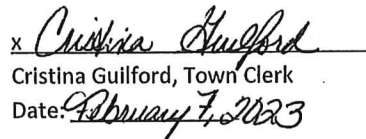 x Cristina Guilford
Cristina Guilford, Town Clerk
Date: February 7, 2023